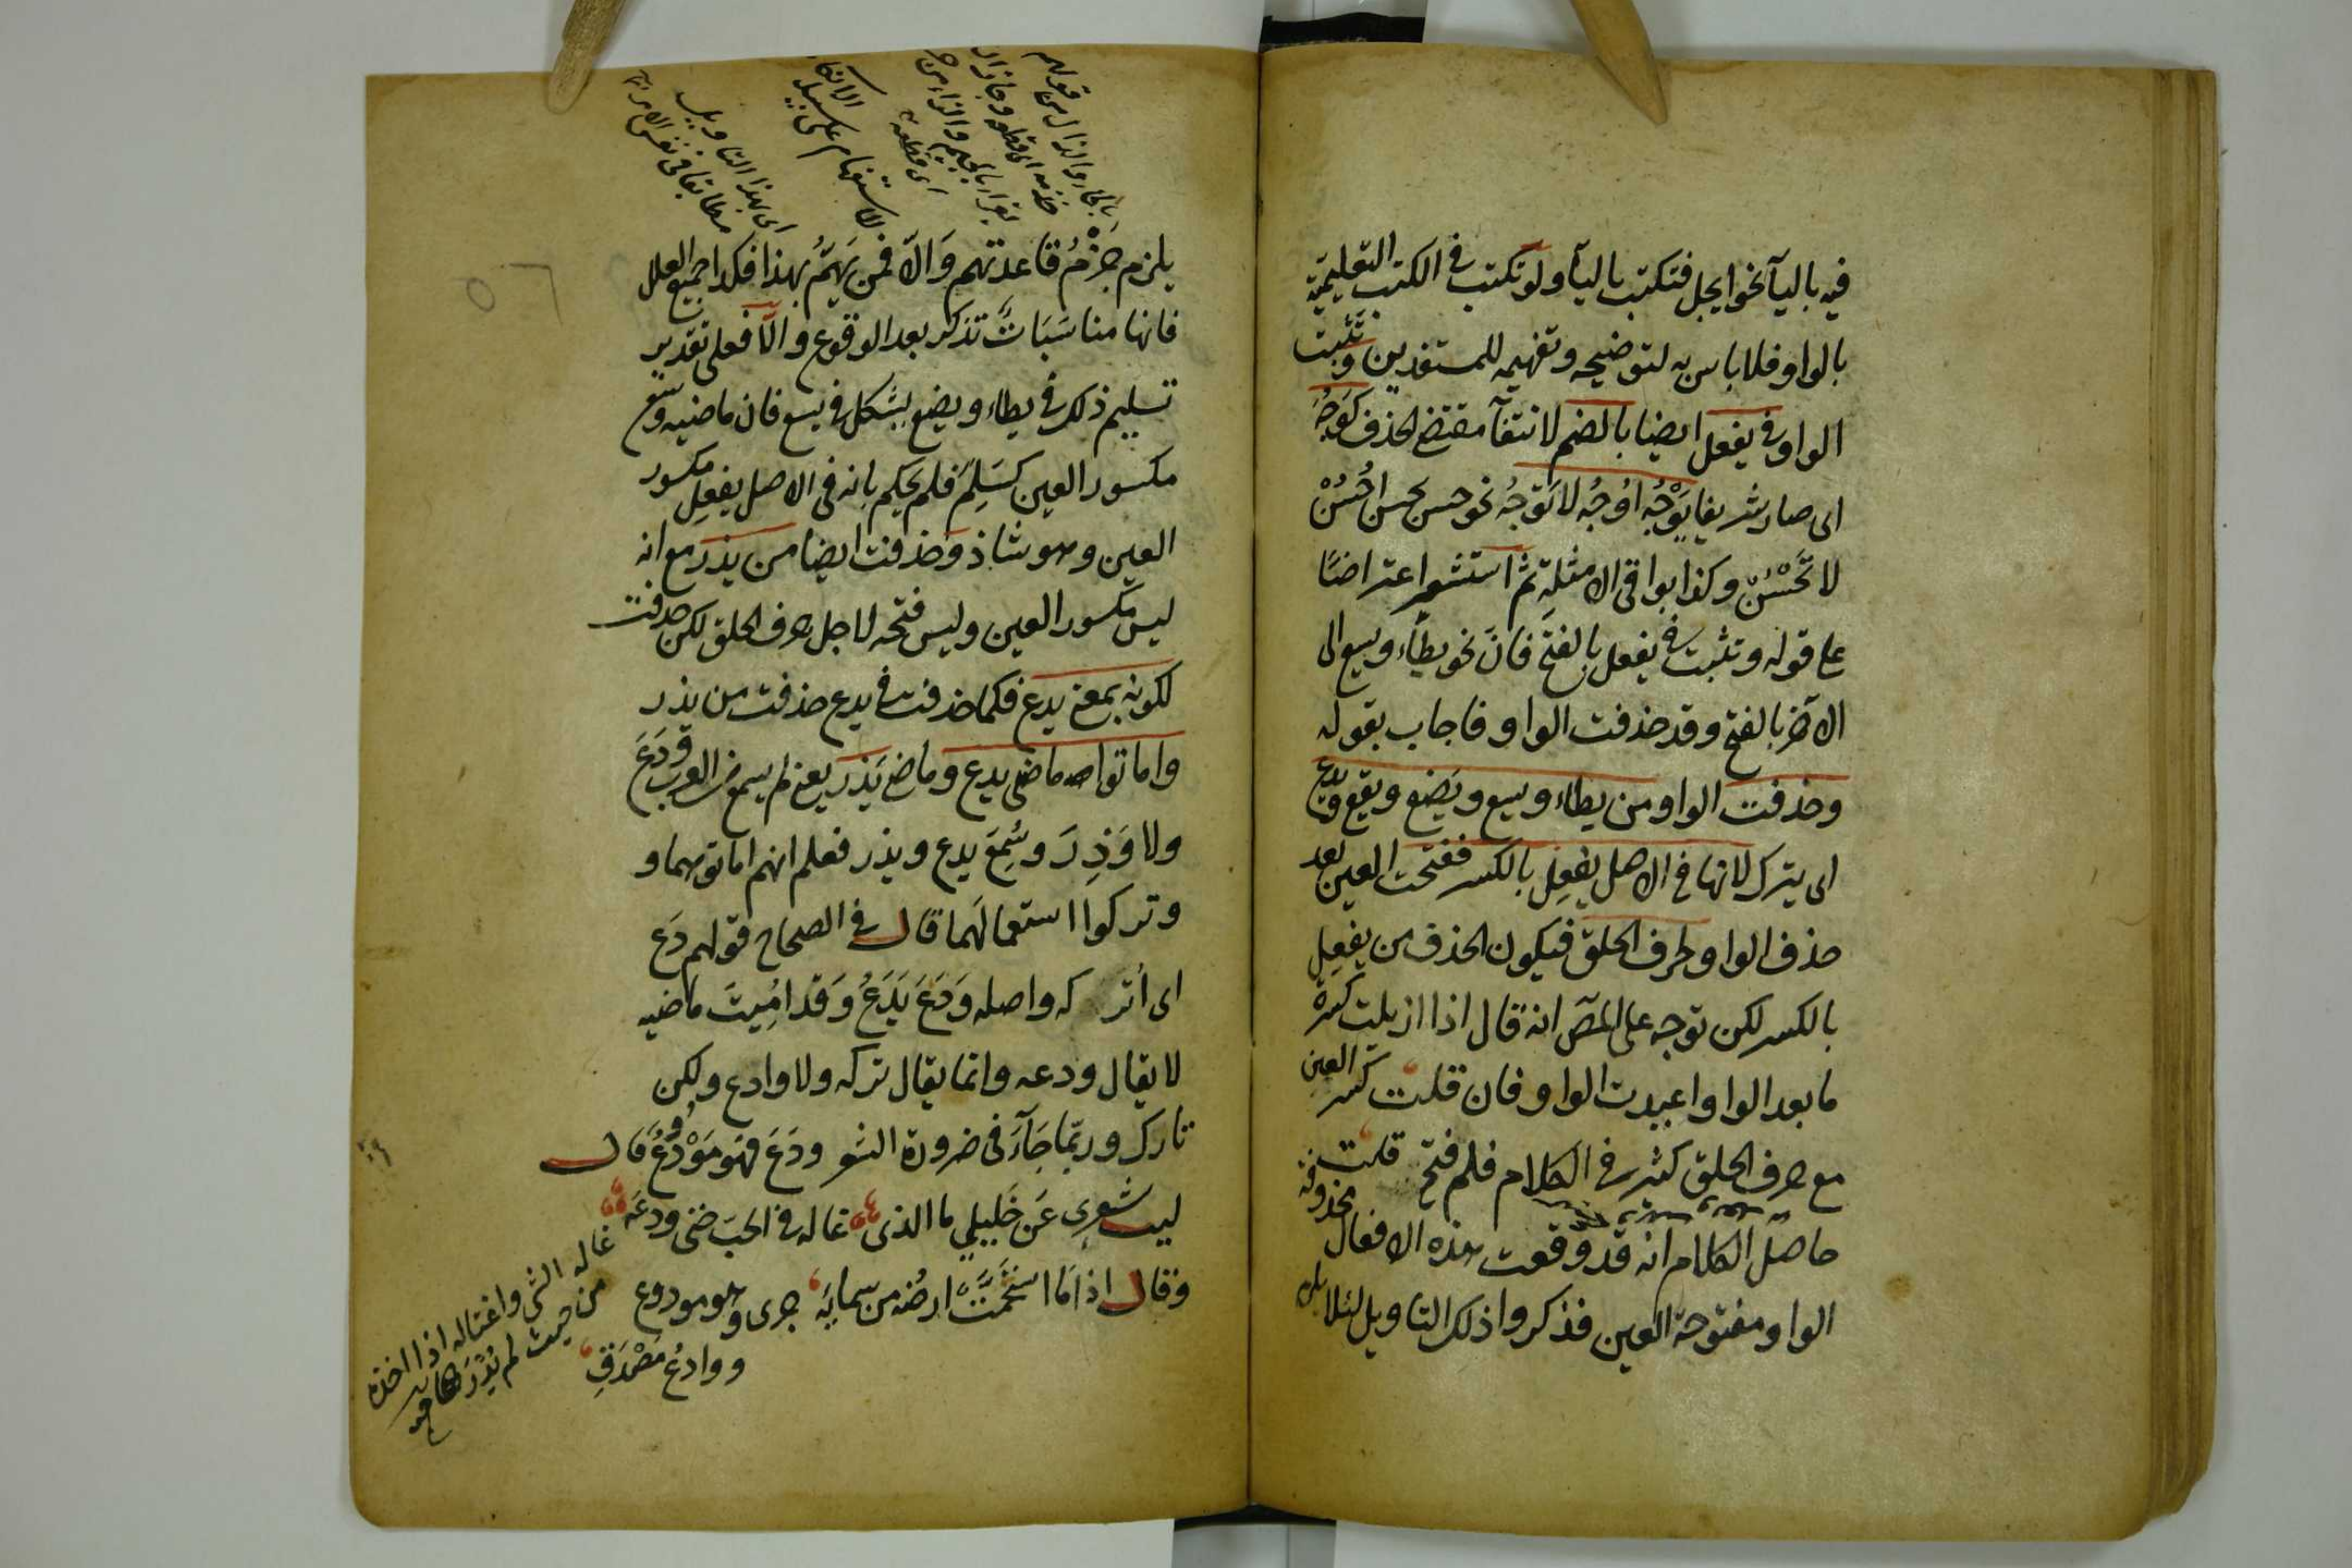 فيه بالياء نحو ايجل فتكتب بالياء ولو تكتب في الكتب التعليمية
بالواو فلا باس به لتوضيحه وتفهيمه للمستفدين وتثبت
الواو في يفعل ايضا بالضم لانتفاء مقتضى الحذف كوجه
اى صار شريفا يوجه اوجه لا توجه نحو حسن يحسن احسن
لا تحسن وكذا بواقى الامثلة ثم استشعر اعتراضا
على قوله وتثبت في يفعل بالفتح فان نحو يطاء ويسع الى
الآخر بالفتح وقد حذفت الواو فاجاب بقوله
وحذفت الواو من يطاء ويسع ويضع ويقع ويدع
اى يترك لانها في الاصل يفعل بالكسر ففتحت العين بعد
حذف الواو لحرف الحلق فيكون الحذف من يفعل
بالكسر لكن توجه على المص انه قال اذا ازيلت كسرة
ما بعد الواو اعيدت الواو فان قلت كسر العين
مع حرف الحلق كثير في الكلام فلم فتح قلت
حاصل الكلام انه قد وقعت هذه الافعال محذوفة
الواو مفتوحة العين فذكروا ذلك التاويل لئلا يلزم
يلزم خرم قاعدتهم والا فمن يهتم بهذا فكذا جميع العلل
فانها مناسبات تذكر بعد الوقوع والا فعلى تقدير
تسليم ذلك في يطاء ويضع يشكل في يسع فان ماضيه وسع
مكسور العين كسلم فلم يحكم بانه في الاصل يفعل مكسور
العين وهو شاذ وحذفت ايضا من يذر مع انه
ليس مكسور العين وليس فتحه لاجل حرف الحلق لكن حذفت
لكونه بمعنى يدع فكما حذفت في يدع حذفت من يذر
واماتوا ماضى يدع وماضى يذر يعنى لم يسمع من العرب ودع
ولا وذر وسمع يدع ويذر فعلم انهم اماتوهما و
وتركوا استعمالهما قال في الصحاح قولهم دع
اى اتركه واصله ودع يدع وقد اميت ماضيه
لا يقال ودعه وانما يقال تركه ولا وادع ولكن
تارك وربما جاء في ضرورة الشعر ودع فهو مودوع قال
ليت شعرى عن خليلي ما الذى غاله في الحب حتى ودعه
وقال اذا ما استحمت ارضه من سمايه جرى وهو مودوع
ووادع مصدق
غاله الشي واغتاله اذا اخذه
من حيث لم يدر
اى بهذا التاويل
مطابقا في نفس الامر
الاستفهام على سبيل الانكار